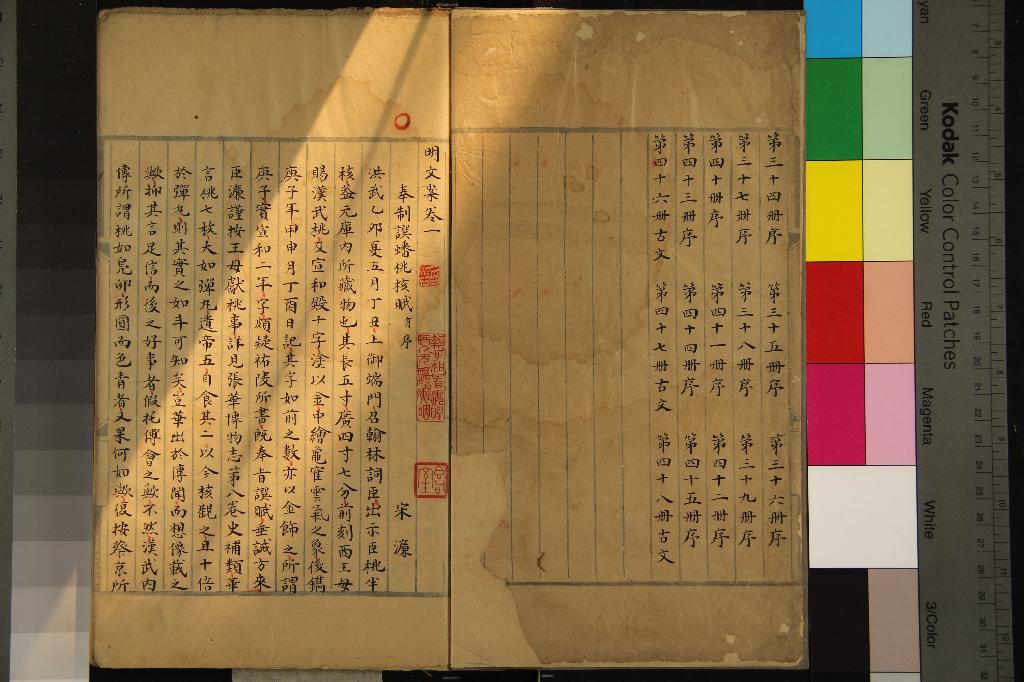 第三十四册序 第三十五册序 第三十六册序
第三十七册序 第三十八册序 第三十九册序
第四十册序 第四十一册序 第四十二册序
第四十三册序 第四十四册序 第四十五册序
第四十六册古文 第四十七册古文 第四十八册古文
明文案卷一
奉制譔蟠桃核賦有序 宋濂
洪武乙卯夏五月丁丑上御端門召翰林詞臣出示臣桃半
核蓋元庫內所藏物也其長五寸廣四寸七分前刻西王母
賜漢武桃及宣和殿十字塗以金中繪龜雀雲氣之象後鐫
庚子年甲申月丁酉日記其字如前之數亦以金飾之所謂
庚子實宣和二年字頗疑祐陵所書既奉旨譔賦垂誡方來
臣濂謹按王母獻桃事詳見張華博物志第八卷史補類華
言桃七枚大如彈丸遺帝五自食其二以今核觀之且十倍
於彈丸則其實之如斗可知矣豈華出於傳聞而想像載之
歟抑其言足信而後之好事者假托傅會之歟不然漢武內
傳所謂桃如鳧卵形圓而色青者又果何如歟復按蔡京所
Kodak Color Control Patches
yan Green Yellow Red Magenta White 3/Color